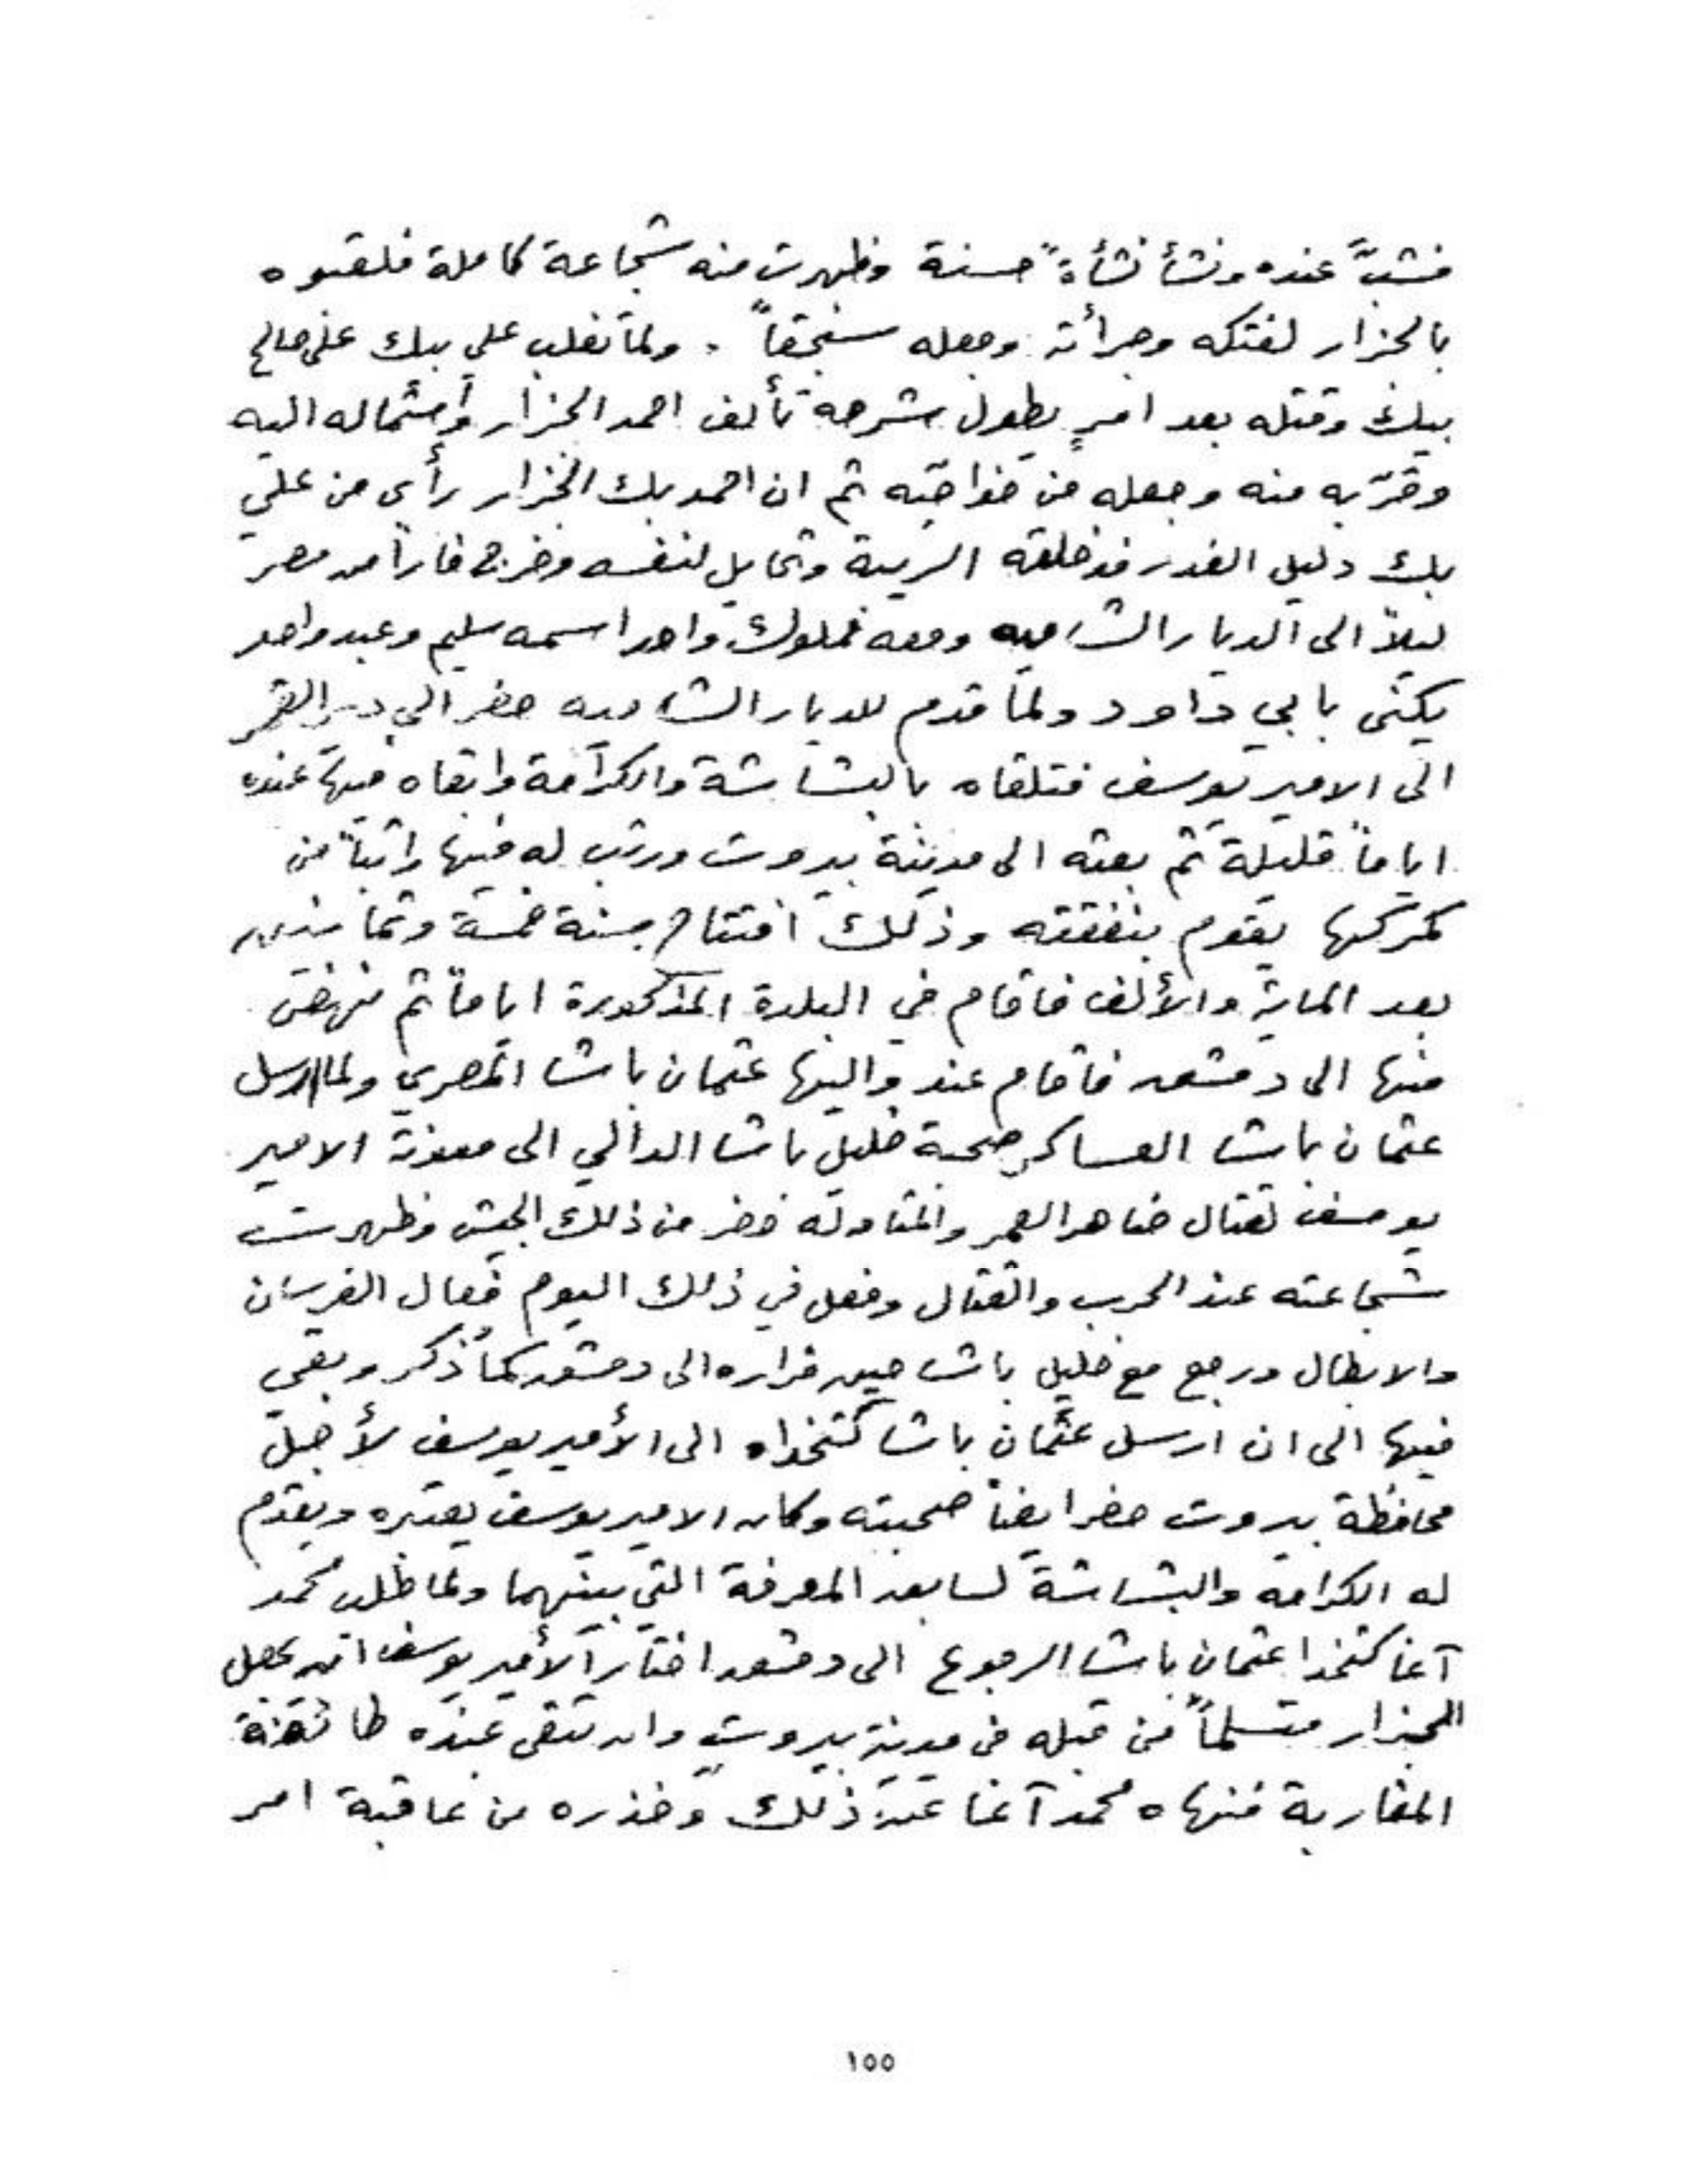 فشبَّ عنده ونشأ نشأةً حسنة وظهرت منه شجاعة كاملة فلقبوه
بالجزار لفتكه وجرأته وجعله سنجقاً . ولما تغلب علي بيك على صالح
بيك وقتله بعد امرٍ يطول شرحه تألف احمد الجزار وأمثاله اليه
وقرّبه منه وجعله من خواصّه ثم ان احمد بك الجزار رأى من علي
بك دليل الغدر فدخلته الريبة وتحايل لنفسه وخرج فاراً من مصر
ليلاً الى الديار الشاميه ومعه مملوك واحد اسمه سليم وعبد واحد
يكنى بابي داود ولما قدم للديار الشاميه حضر الى دير القمر
الى الامير يوسف فتلقاه بالبشاشة والكرامة وابقاه فيها عنده
اياماً قليلة ثم بعثه الى مدينة بيروت ورتب له فيها راتباً من
كمركها يقوم بنفقته وذلك افتتاح سنة خمسة وثمانين
بعد الماية والألف فاقام في البلدة المذكورة اياماً ثم نهض
منها الى دمشق فاقام عند واليها عثمان باشا المصري ولما ارسل
عثمان باشا العساكر صحبة خليل باشا الدالي الى معونة الامير
يوسف لقتال ضاهر العمر والمتاوله حضر من ذلك الجيش وظهرت
شجاعته عند الحرب والقتال وفعل في ذلك اليوم فعال الفرسان
والابطال ورجع مع خليل باشا حين فراره الى دمشق كما ذكر وبقي
فيها الى ان ارسل عثمان باشا كتخداه الى الأمير يوسف لأجل
محافظة بيروت حضر ايضاً صحبته وكان الامير يوسف يعتبره ويقدم
له الكرامه والبشاشة لسابق المعرفة التي بينهما ولما طلب محمد
آغا كتخدا عثمان باشا الرجوع الى دمشق اختار الأمير يوسف ان يجعل
الجزار متسلماً من قبله في مدينة بيروت وان تبقى عنده طائفة
المغاربة فنهاه محمد آغا عن ذلك وحذره من عاقبة امر
١٥٥